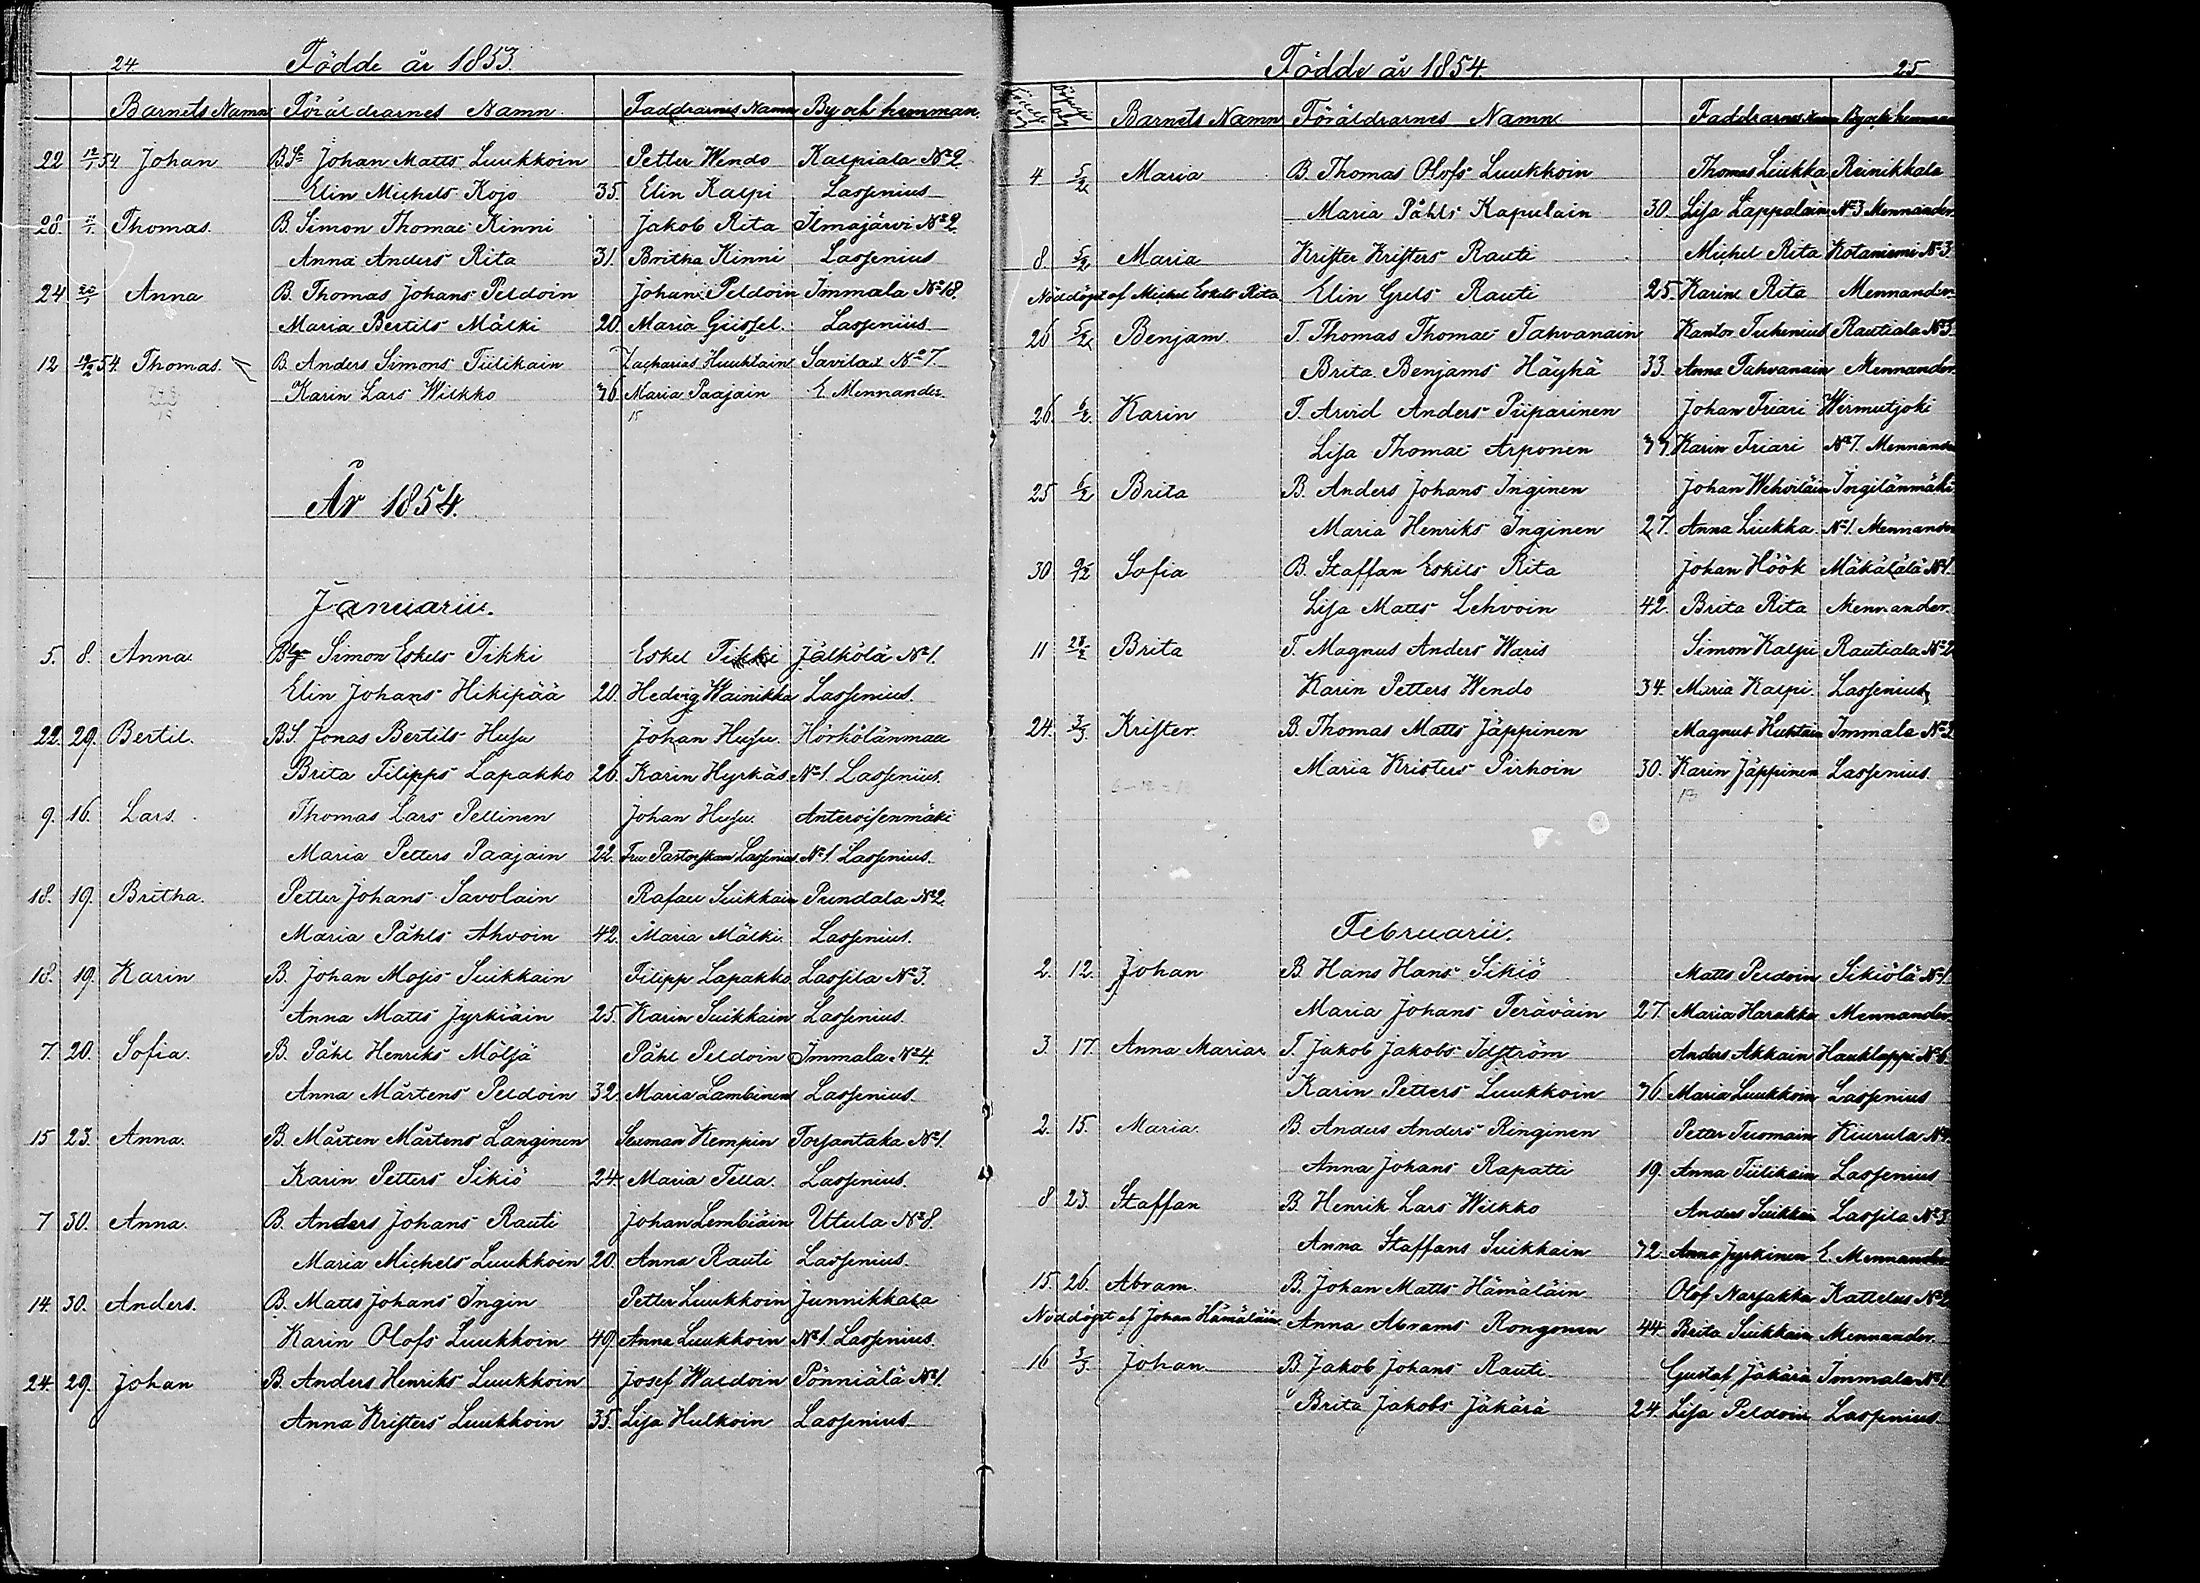 24. Födde år 1853.
Barnets Namn Föräldrarnes Namn Faddrarnes Namn By och hemman.
22 12/1 54 Johan BSn Johan Matts Luukkoin Petter Wendo Kalpiala No 2
Elin Michels Kojo 35. Elin Kalpi Lassenius
28. Thomas. B. Simon Thomae Kinni Jakob Rita Ilmajärvi No 2
Anna Anders Rita 31. Britha Kinni Lassenius
24 Anna B. Thomas Johans Peldoin Johan Peldoin Immala No 18.
Maria Bertils Mälki 20. Maria Lassenius
12 12/2 54. Thomas. B. Anders Simons Tiilikain Zacharias Huuhtain Savilax No 7
Karin Lars Wilkko 36 Maria Paajain E Mennander
År 1854.
Januarii.
5. 8. Anna Simon Eskels Tikki Eskel Tikki Jälkölä No 1.
Elin Johans Hikipää 20. Hedvig Wainikka Lassenius.
22. 29. Bertil. BS Jonas Bertils Husu Johan Husu. Hörkölänmaa
Brita Filipps Lapakko 26. Karin Hyrkäs No 1. Lassenius.
9. 16. Lars. Thomas Lars Pellinen Johan Husu. Anteroisenmäki
Maria Petters Paajain 22. Fru Pastorskan Lassenius No 1. Lassenius.
18. 19. Britha. Petter Johans Savolain Rafael Suikkain Pundala No 2.
Maria Påhls Ahvoin 42. Maria Mälki. Lassenius.
18. 19. Karin B. Johan Mosis Suikkain Filipp Lapakko Lassila No 3.
Anna Matts Jyrkiäin 25. Karin Suikkain Lassenius.
7. 20. Sofia. B. Påhl Henriks Möljä Påhl Peldoin Immala No 4.
Anna Mårtens Peldoin 32. Maria Lambinen Lassenius.
15 23. Anna. B. Mårten Mårtens Langinen Sexman Kempin Torsantaka No 1.
Karin Petters Sikiö 24. Maria Tella. Lassenius.
7 30. Anna. B. Anders Johans Rauti Johan Lembiäin Utula No 8.
Maria Michels Luukkoin 20. Anna Rauti Lassenius.
14. 30. Anders. B. Matts Johans Ingin Petter Luukkoin Junnikkala
Karin Olofs Luukkoin 49. Anna Luukkoin No 1. Lassenius.
24. 29. Johan B. Anders Henriks Luukkoin Josef Waldoin Pönniälä No 1.
Anna Kristers Luukkoin 35. Lisa Hulkoin Lassenius.
Födde år 1854. 25
Barnets Namn Föräldrarnes Namn Faddrarnes Namn By och hemman
4 5/2 Maria B. Thomas Olofs Luukkoin Thomas Liukka Reinikkala
Maria Påhls Kapulain 30. Lisa Lappalain No 3 Mennander
8 5/2 Maria Krister Kristers Rauti Michel Rita Kotaniemi No 3.
Nöddöpt af Michel Eskels Rita Elin Grels Rauti 25. Karin Rita Mennander
26 5/2 Benjam T. Thomas Thomae Tahvanain Kantor Tuhenius Rautiala No 3
Brita Benjams Häyhä 33. Anna Tahvanain Mennander.
26. 6/2. Karin T. Arvid Anders Piiparinen Johan Friari Wirmutjoki
Lisa Thomae Arponen 33 Karin Friari No 7. Mennander
25 6/2 Brita B. Anders Johans Inginen Johan Wehviläin Ingilänmäki
Maria Henriks Inginen 27. Anna Liukka. No 1. Mennander
30 9/2 Sofia B. Staffan Eskils Rita Johan Höök Mäkälälä No 1.
Lisa Matts Lehvoin 42. Brita Rita Mennander.
11 28/2 Brita T. Magnus Anders Waris Simon Kalpi Rautiala No 2
Karin Petters Wendo 34. Maria Kalpi. Lassenius
24. 3/3 Krister. B. Thomas Matts Jäppinen Magnus Huhtain Immala No 2
Maria Kristers Pirhoin 30. Karin Jäppinen Lassenius.
Februarii.
2. 12. Johan B. Hans Hans Sikiö Matts Peldoin Sikiölä No 1.
Maria Johans Teräväin 27. Maria Harakka Mennander.
3. 17. Anna Maria T. Jakob Jakobs Idström Anders Akkain Hauklappi No 6.
Karin Petters Luukkoin 36 Maria Luukkoin Lassenius
2. 15. Maria. B. Anders Anders Ringinen Petter Tuomain Kiurula
Anna Johans Rapatti 19. Anna Tiilikain Lassenius
8 23. Staffan B. Henrik Lars Wilkko Anders Suikkain Lassila No 3
Anna Staffans Suikkain 32. Anna Jyrkinen E. Mennander
15. 26. Abram. B. Johan Matts Hämäläin Olof Narsakka Kattelus No 2
Nöddöpt af Johan Hämäläin Anna Abrams Rongonen 44 Brita Suikkain Mennander.
16 3/3. Johan. B. Jakob Johans Rauti Gustaf Jäkärä Immala No 1
Brita Jakobs Jäkärä 24. Lisa Peldoin Lassenius.